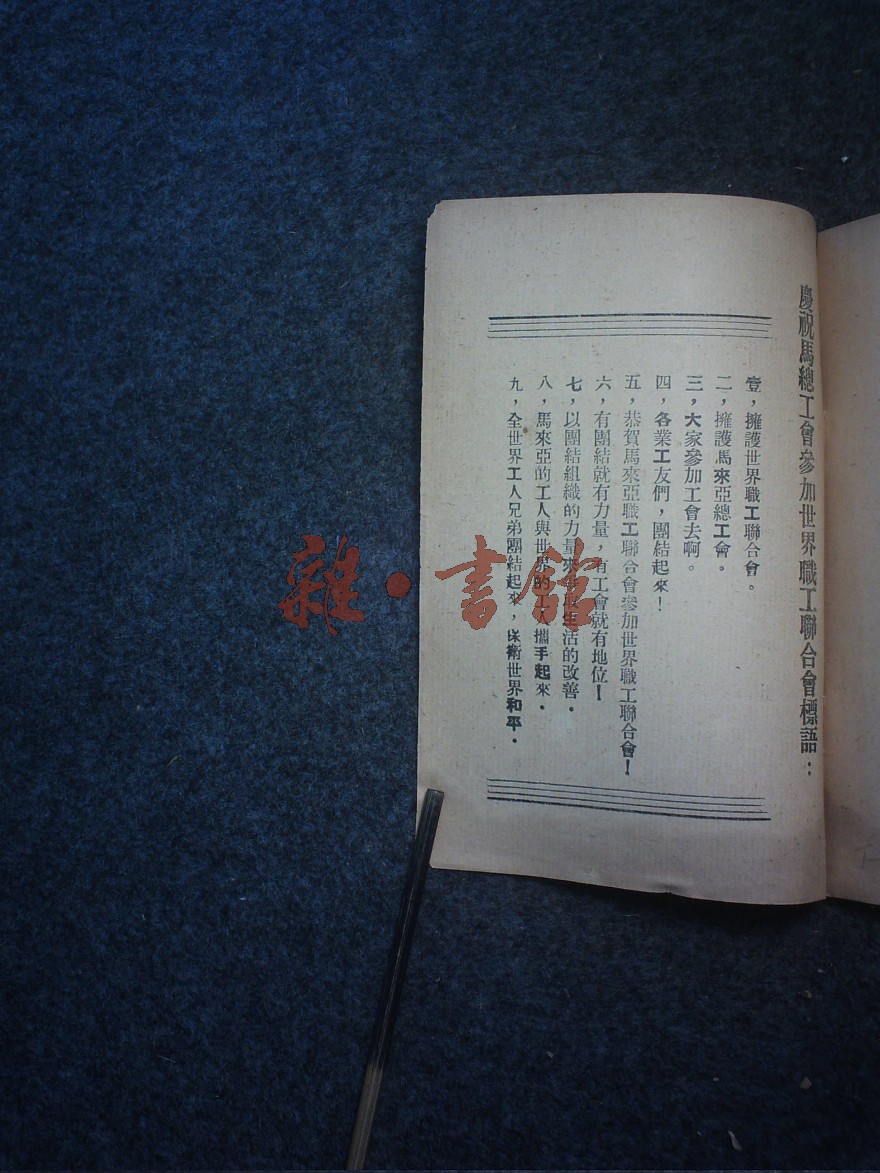 慶祝馬總工會參加世界職工聯合會標語：
壹，擁護世界職工聯合會。
二，擁護馬來亞總工會。
三，大家參加工會去啊。
四，各業工友們，團結起來！
五，恭賀馬來亞職工聯合會參加世界職工聯合會！
六，有團結就有力量，有工會就有地位！
七，以團結組織的力量來生活的改善．
八，馬來亞的工人與世界的工人攜手起來．
九，全世界工人兄弟團結起來，保衛世界和平．
雜·書館